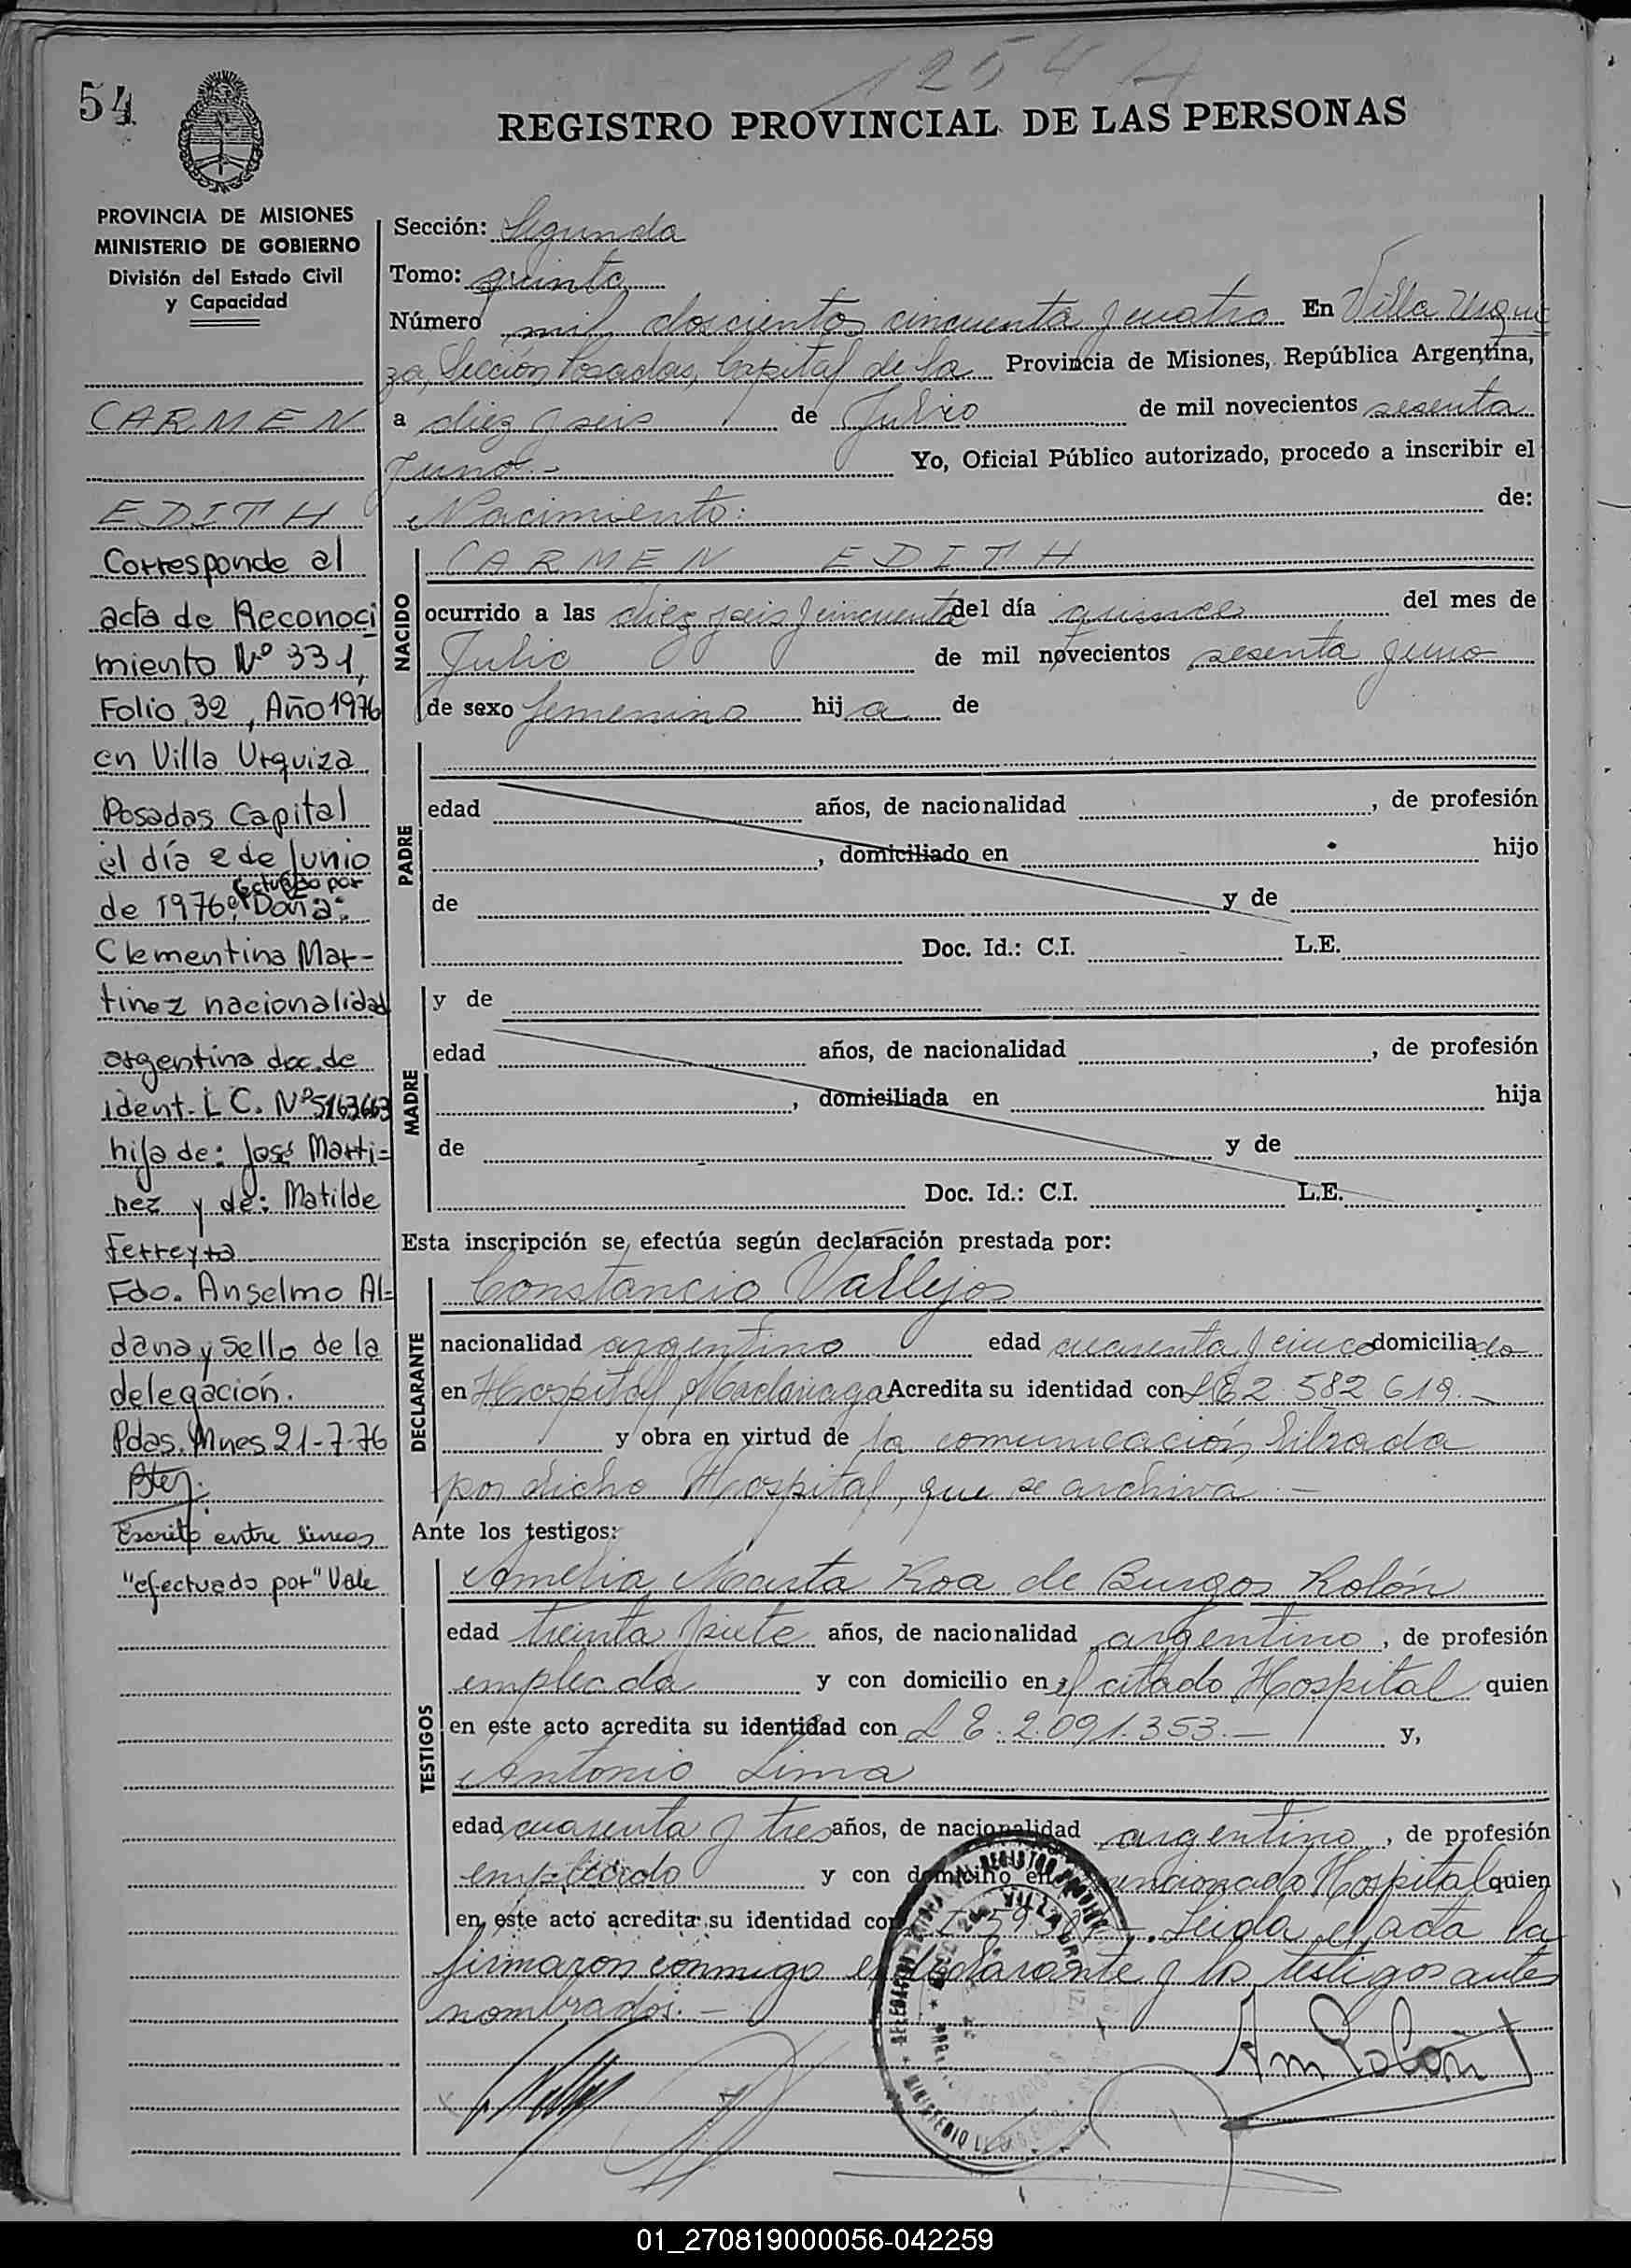 1254
54
REGISTRO PROVINCIAL DE LAS PERSONAS
PROVINCIA DE MISIONES
MINISTERIO DE GOBIERNO
División del Estado Civil
y Capacidad
CARMEN
EDITH
Corresponde al
acta de Reconoci
miento Nº 331,
Folio 32, Año 1976
en Villa Urquiza
Posadas Capital
el día 2 de Junio
efectuado por
de 1976, Doña:
Clementina Mar-
tinez nacionalidad
argentina doc. de
ident. L C. Nº 5163663
hija de: José Marti=
nez y de: Matilde
Ferreyra
Fdo. Anselmo Al=
dana y sello de la
delegación.
Pdas. Mnes 21-7-76
Escrito entre lineas
"efectuado por" Vale
Sección: Segunda
Tomo: quinto
Número mil doscientos cincuenta y cuatro En Villa Urqui
za, Sección Posadas, Capital de la Provincia de Misiones, República Argentina,
a diez y seis de Julio de mil novecientos sesenta
y uno.- Yo, Oficial Público autorizado, procedo a inscribir el
Nacimiento: de:
NACIDO
CARMEN EDITH
ocurrido a las diez y seis y cincuenta del día quince del mes de
Julio de mil novecientos sesenta y uno
de sexo femenino hija de
PADRE
edad años, de nacionalidad , de profesión
, domiciliado en hijo
de y de
Doc. Id.: C.I. L.E.
MADRE
y de
edad años, de nacionalidad , de profesión
, domiciliada en hija
de y de
Doc. Id.: C.I. L.E.
Esta inscripción se efectúa según declaración prestada por:
DECLARANTE
Constancio Vallejos
nacionalidad argentino edad cuarenta y cinco domiciliado
en Hospital Madariaga Acredita su identidad con L E 2.582.619.-
y obra en virtud de la comunicación librada
por dicho Hospital, que se archiva.-
Ante los testigos:
TESTIGOS
Amelia Marta Roa de Burgos Rolón
edad treinta y siete años, de nacionalidad argentino, de profesión
empleada y con domicilio en el citado Hospital quien
en este acto acredita su identidad con L E. 2.091.353.- y,
Antonio Lima
edad cuarenta y tres años, de nacionalidad argentino, de profesión
empleado y con domicilio en mencionado Hospital quien
en este acto acredita su identidad con . Leida el acta la
firmaron conmigo el declarante y los testigos antes
nombrados.-
01_270819000056-042259